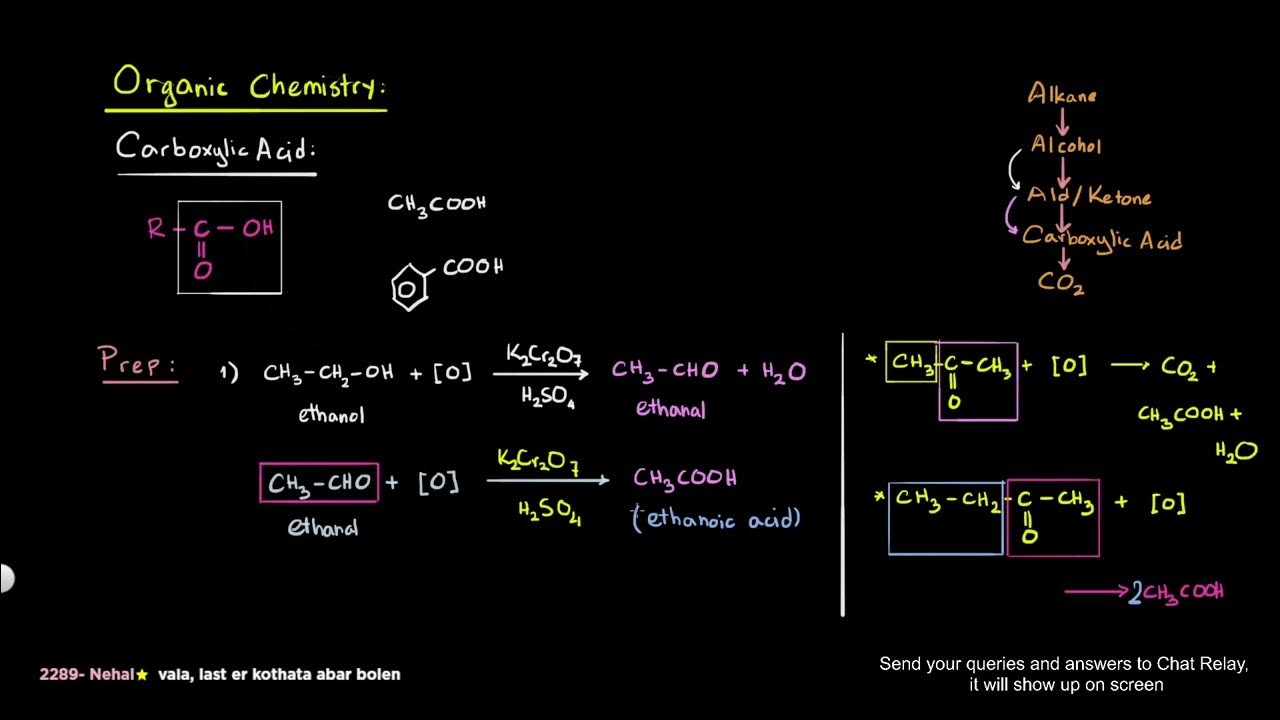 Organic Chemistry:
Carboxylic Acid:
R - C - OH
||
O
CH₃COOH
COOH
Alkane
Alcohol
Ald/Ketone
Carboxylic Acid
CO₂
Prep:
1) CH₃-CH₂-OH + [O] K₂Cr₂O₇ H₂SO₄ → CH₃-CHO + H₂O
ethanol ethanal
CH₃-CHO + [O] K₂Cr₂O₇ H₂SO₄ → CH₃COOH
ethanal (ethanoic acid)
* CH₃-C-CH₃ + [O] → CO₂ +
||
O
CH₃COOH +
H₂O
* CH₃-CH₂-C-CH₃ + [O]
||
O
→ 2CH₃COOH
2289- Nehal★ vala, last er kothata abar bolen
Send your queries and answers to Chat Relay,
it will show up on screen